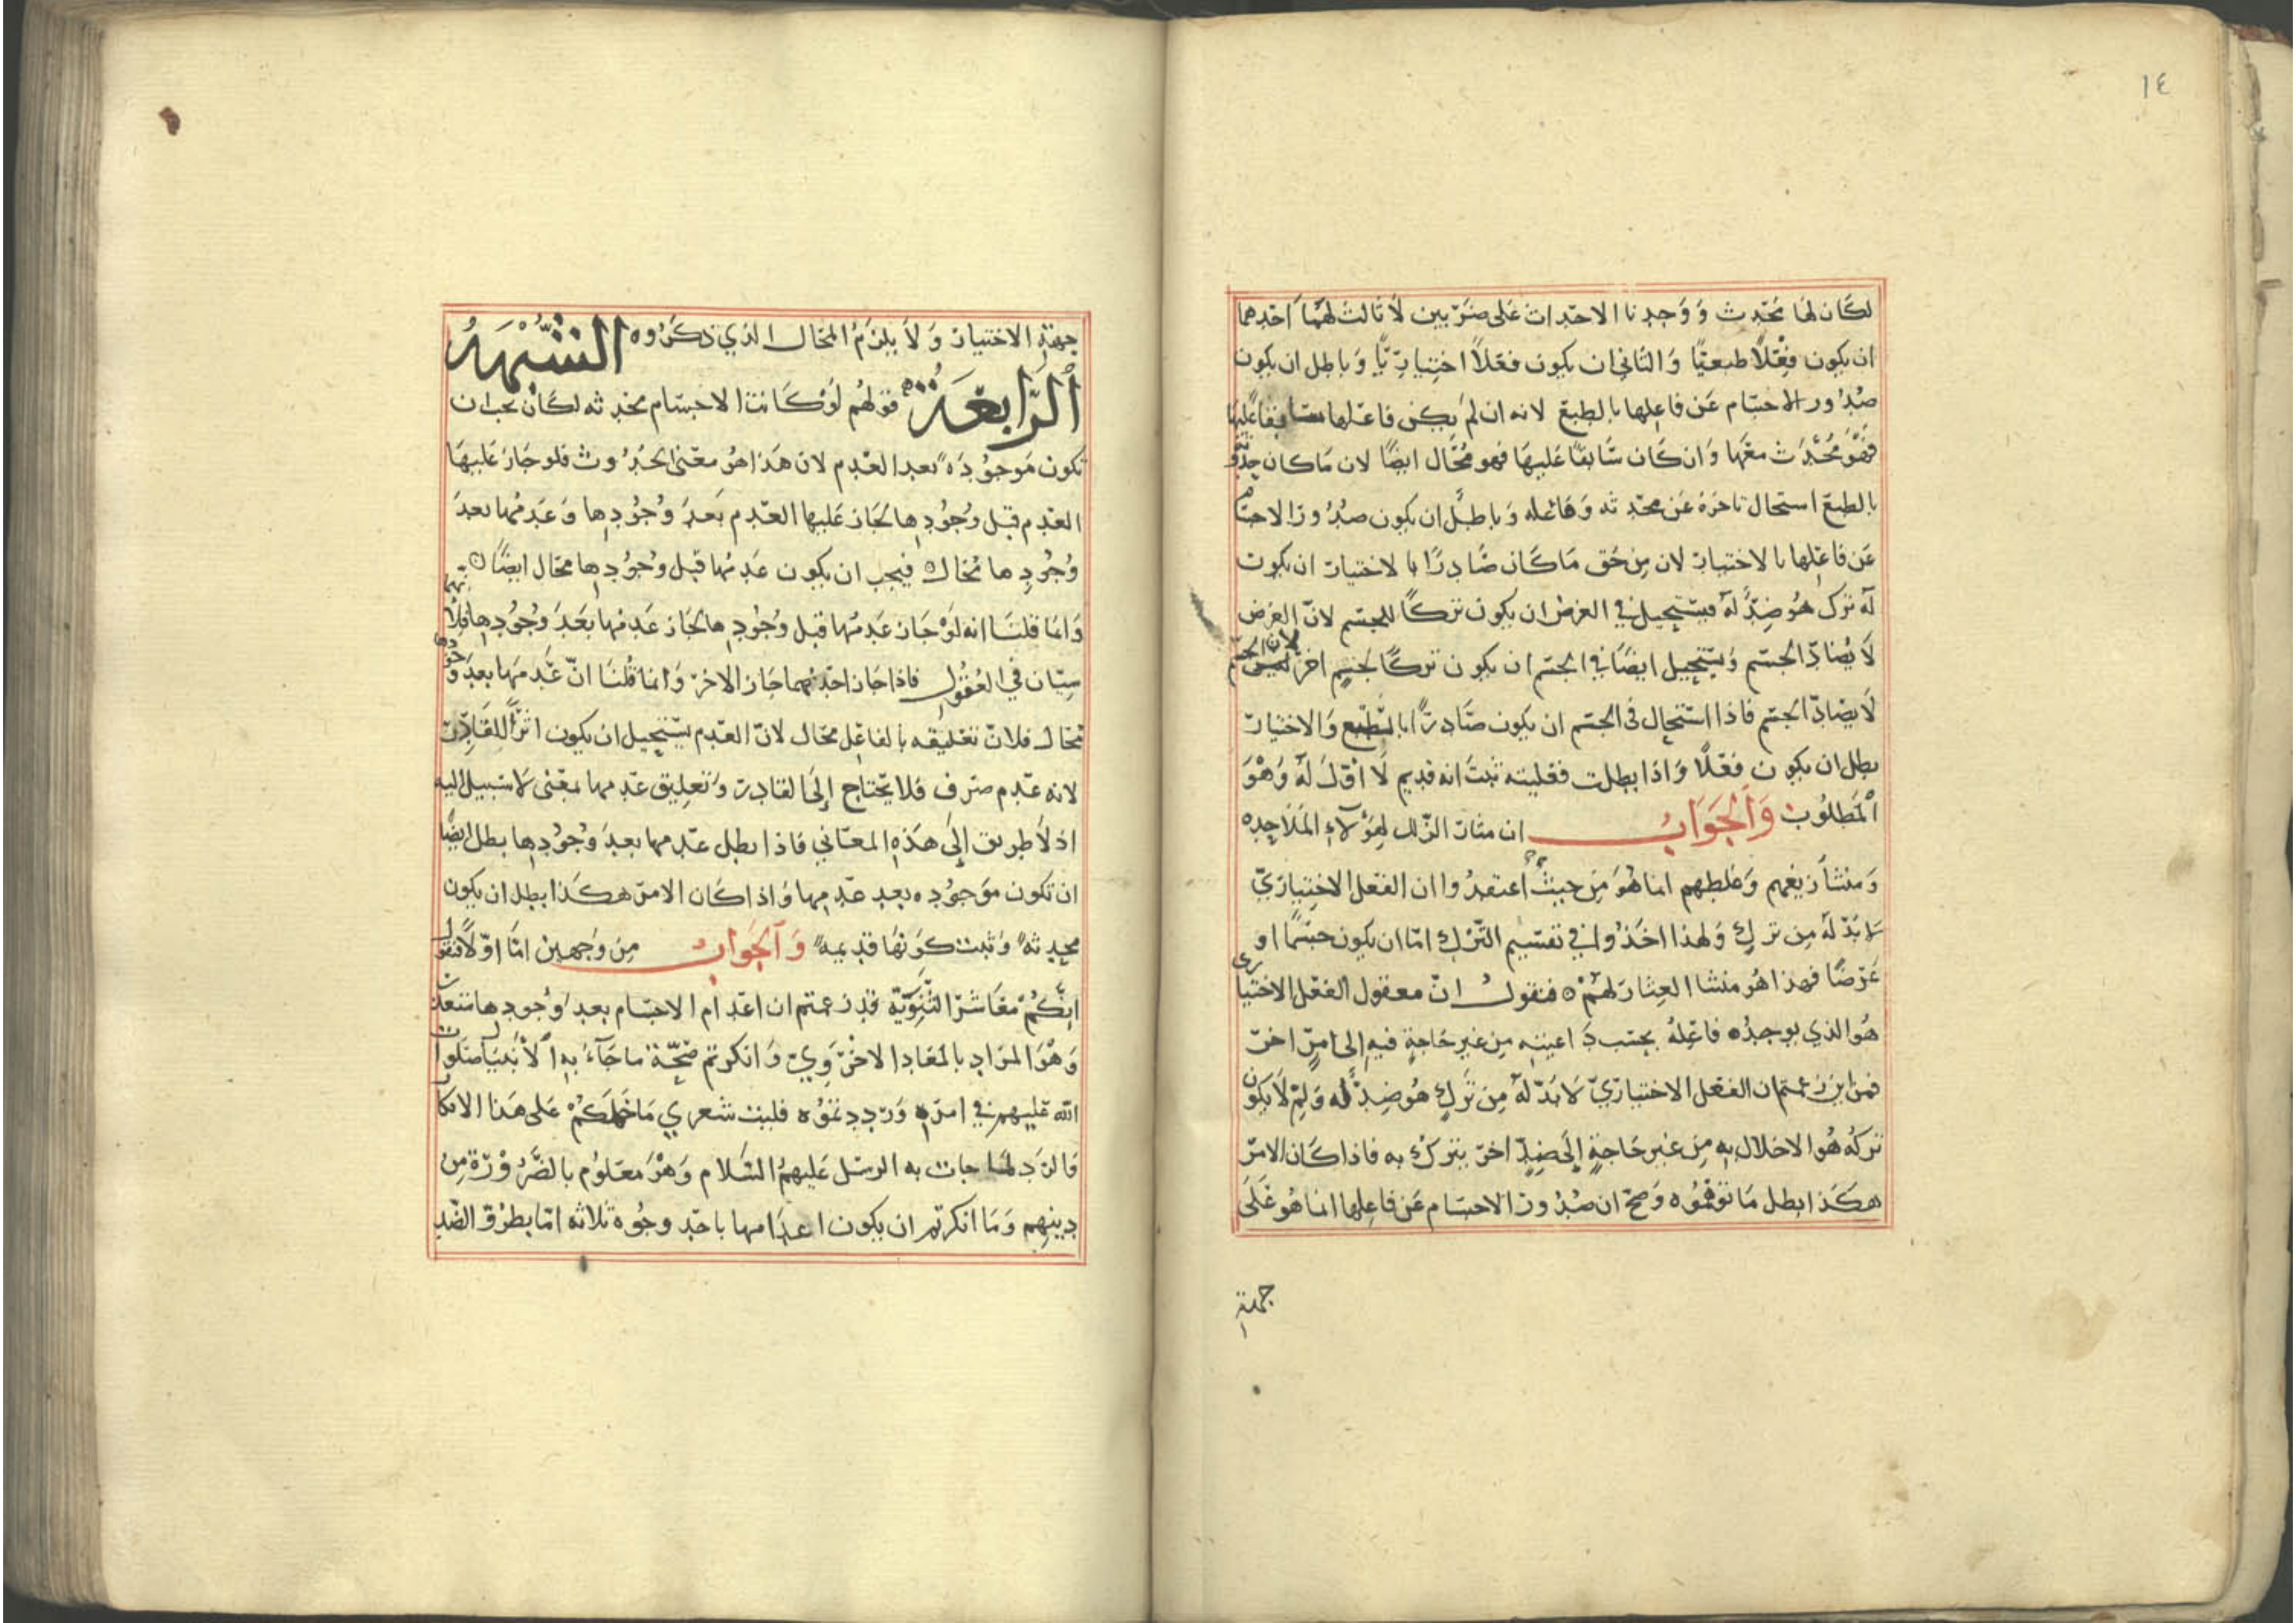 ١٤
لكان لها محدث ووجدنا الاحداث على ضربين لا ثالث لهما احدهما
ان يكون فعلا طبعيا والثاني ان يكون فعلا اختياريا وباطل ان يكون
صدور الاجسام عن فاعلها بالطبع لانه ان لم يكن فاعلها سابقا عليها
فهو محدث معها وان كان سابقا عليها فهو محال ايضا لان ما كان حدوثه
بالطبع استحال تاخره عن محدثه وفاعله وباطل ان يكون صدور الاجسام
عن فاعلها بالاختيار لان من حق ما كان صادرا بالاختيار ان يكون
له ترك هو ضد له فيستحيل في العرض ان يكون تركا للجسم لان العرض
لا يضاد الجسم ويستحيل ايضا في الجسم ان يكون تركا لجسم اخر لان الجسم
لا يضاد الجسم فاذا استحال في الجسم ان يكون صادرا بالطبع والاختيار
بطل ان يكون فعلا واذا بطلت فعليته ثبت انه قديم لا اول له وهو
المطلوب والجواب ان مثار الزلل لهؤلاء الملاحده
ومنشا زيغهم وغلطهم انما هو من حيث اعتقدوا ان الفعل الاختياري
لا بد له من ترك ولهذا اخذوا في تقسيم الترك اما ان يكون جسما او
عرضا فهذا هو منشا العثار لهم ٥ فنقول ان معقول الفعل الاختياري
هو الذي يوجده فاعله بحسب داعيته من غير حاجة فيه الى امر اخر
فمن اين زعمتم ان الفعل الاختياري لا بد له من ترك هو ضد له ولم لا يكون
تركه هو الاخلال به من غير حاجة الى ضد اخر يترك به فاذا كان الامر
هكذا بطل ما توهموه وصح ان صدور الاجسام عن فاعلها انما هو على
جهة
جهة الاختيار ولا يلزم المحال الذي ذكروه الشبهة
الرابعة قولهم لو كانت الاجسام محدثه لكان يجب ان
تكون موجوده بعد العدم لان هذا هو معنى الحدوث فلو جاز عليها
العدم قبل وجودها لجاز عليها العدم بعد وجودها وعدمها بعد
وجودها محال ٥ فيجب ان يكون عدمها قبل وجودها محال ايضا ٥
وانما قلنا انه لو جاز عدمها قبل وجودها لجاز عدمها بعد وجودها فلانهما
سيان في العقول فاذا جاز احدهما جاز الاخر وانما قلنا ان عدمها بعد وجودها
محال فلان تعليقه بالفاعل محال لان العدم يستحيل ان يكون اثرا للقادر
لانه عدم صرف فلا يحتاج الى القادر وتعليق عدمها بمعنى لا سبيل اليه
اذ لا طريق الى هذه المعاني فاذا بطل عدمها بعد وجودها بطل ايضا
ان تكون موجوده بعد عدمها واذا كان الامر هكذا بطل ان يكون
محدثه وثبت كونها قديمه والجواب من وجهين اما اولا فنقول
انكم معاشر الثنوية قد زعمتم ان اعدام الاجسام بعد وجودها متعذر
وهو المراد بالمعاد الاخروي وانكرتم صحة ما جاء به الانبيا صلوات
الله عليهم في امره ورددتموه فليت شعري ما حملكم على هذا الانكار
والرد لما جات به الرسل عليهم السلام وهو معلوم بالضرورة من
دينهم وما انكرتم ان يكون اعدامها باحد وجوه ثلاثه اما بطرو الضد